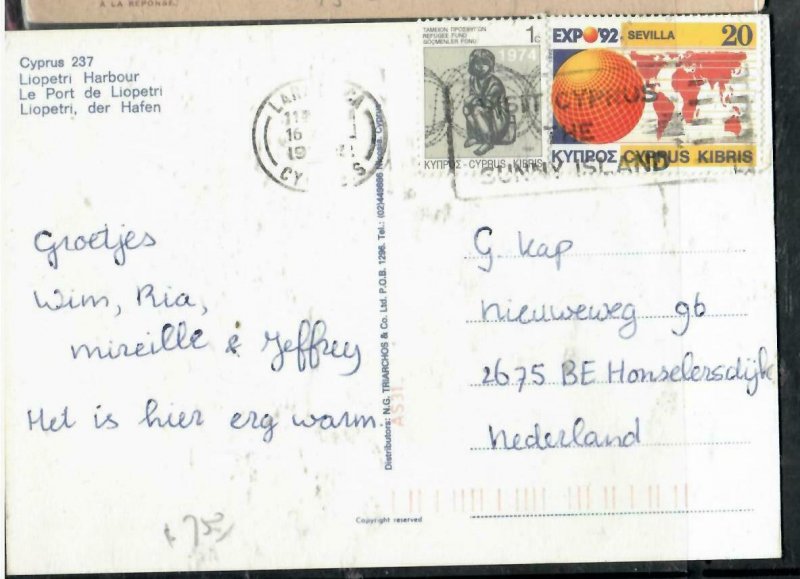 À LA RÉPONSE.
Cyprus 237
Liopetri Harbour
Le Port de Liopetri
Liopetri, der Hafen
16
CY S
ΤΑΜΕΙΟΝ ΠΡΟΣΦΥΓΩΝ 1c
REFUGEE FUND
GÖÇMENLER FONU
1974
ΚΥΠΡΟΣ·CYPRUS·KIBRIS
EXPO'92 SEVILLA 20
ΚΥΠΡΟΣ CYPRUS KIBRIS
VISIT CYPRUS
THE
SUNNY ISLAND
Groetjes
Wim, Ria,
Mireille & Jeffrey
Het is hier erg warm.
Distributors: N.G. TRIARCHOS & Co. Ltd. P.O.B. 1296. Tel.: (02)449896 Nicosia, Cyprus
A531
G. Kap
Nieuweweg 9b
2675 BE Honselersdijk
Nederland
7.50
Copyright reserved